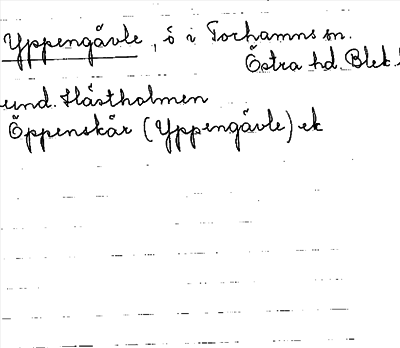 Yppengåvle, ö i Torhamns sn.
Östra hd. Blek.l
und. Hästholmen
Öppenskär (Yppengåvle) ek